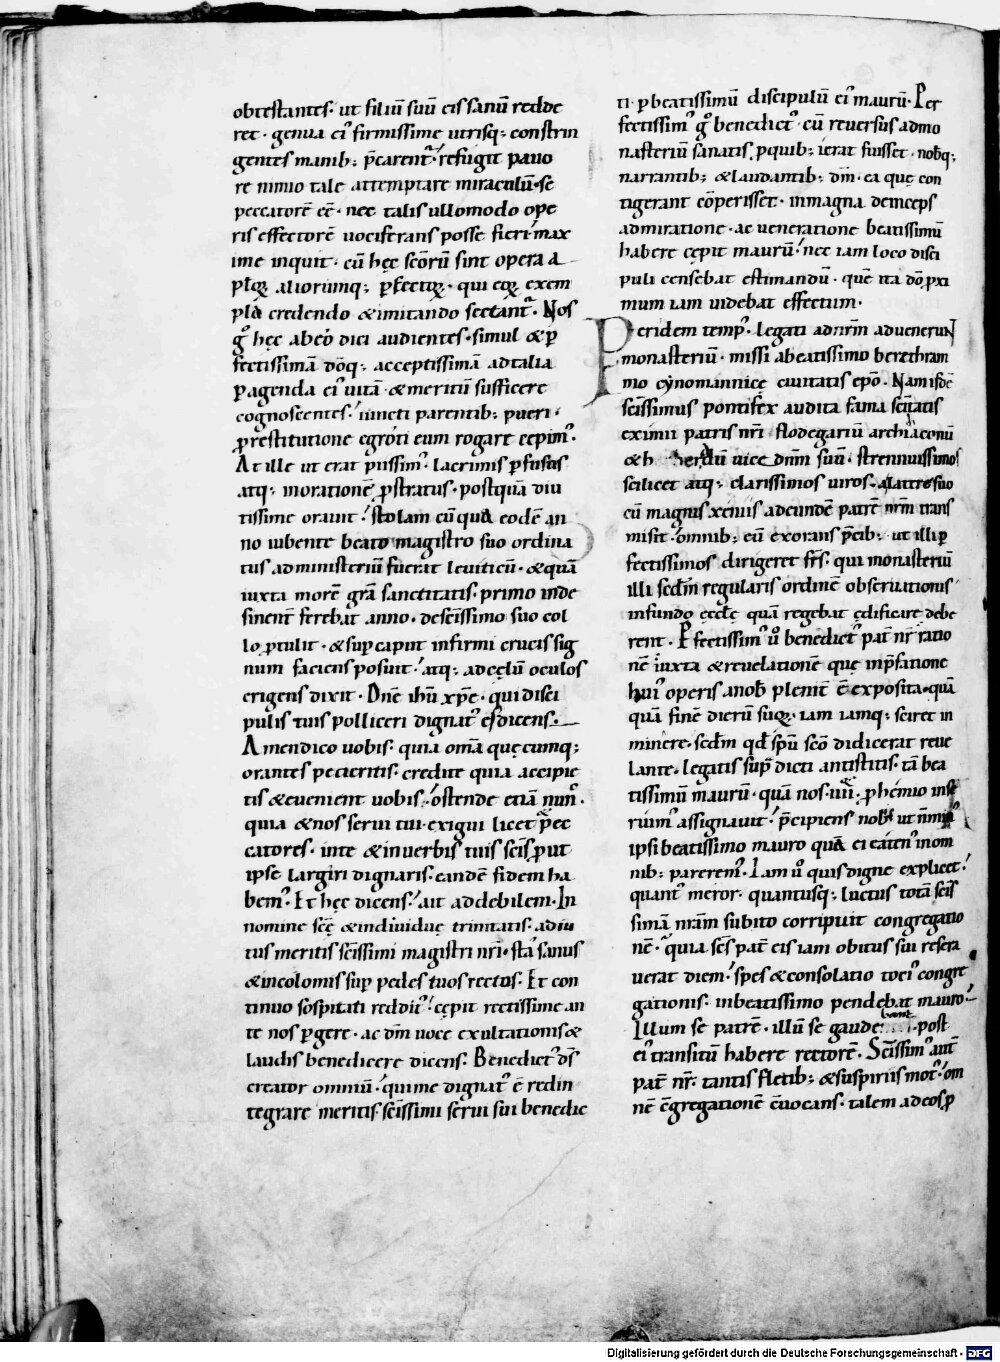 obtestantes· ut filiū suū eis sanū redde
ret· genua ei᾽ firmissime utrisq; constrin
gentes manib; p̄carent᾽· refugit pauo
re nimio tale attemptare miraculū· se
peccatorē eē· nec talis ullomodo ope
ris effectorē uociferans posse fieri· max
ime inquit· cū hęc scōrū sint opera a
pl̄oꝝ aliorumq; ꝑfectoꝝ· qui eoꝝ exem
pla credendo & imitando sectant᾽· Nos
g̊ hęc ab eo dici audientes· simul & ꝑ
fectissimā dōq; acceptissimā ad talia
ꝑagenda ei᾽ uitā & meritū sufficere
cognoscentes· iuncti parentib; pueri·
ꝓ restitutione egroti eum rogare cepim᾽·
At ille ut erat piissim᾽· lacrimis ꝑfusus
atq; in orationē ꝓstratus· postquā diu
tissime orauit· stolam cū qua eodē an
no iubente beato magistro suo ordina
tus ad ministeriū fuerat leuiticū· & quā
iuxta morē gr̄a sanctitatis· primo inde
sinent᾽ ferebat anno· de sc̄issimo suo col
lo ꝓtulit· & suꝑ caput infirmi crucis sig
num faciens posuit· atq; ad cęlū oculos
erigens dixit· Dn̄e ih̄u xp̄e· qui disci
pulis tuis polliceri dignat᾽ es dicens·
Amen dico uobis· quia om̄a quęcumq;
orantes petieritis· credite quia accipie
tis & euenient uobis· ostende etiā nunc·
quia & nos serui tui· exigui licet & pec
catores· in te & in uerbis tuis sc̄is ꝓut
ipse largiri dignaris· eandē fidem ha
bem᾽· Et hęc dicens· ait ad debilem· In
nomine scę̄ & indiuiduę trinitatis· adiu
tus meritis sc̄issimi magistri nr̄i· sta sanus
& incolomis suꝑ pedes tuos rectus· Et con
tinuo sospitati reddit᾽· cępit rectissime an
te nos ꝑgere· ac dm̄ uoce exultationis &
laudis benedicere dicens· Benedict᾽ ds̄
creator omniū· qui me dignat᾽ ē redin
tegrare meritis sc̄issimi serui sui benedic
ti ꝑ beatissimū discipulū ei᾽ maurū· Per
fectissim᾽ g̊ benedict᾽ cū reuersus ad mo
nasteriū sanatis ꝑ quib; ierat fuisset· nobq;
narrantib; & laudantib; dm̄· ea quę con
tigerant cōperisset· in magna deinceps
admiratione· ac ueneratione beatissimū
habere cępit maurū· nec iam loco disci
puli censebat estimandū· quē ita dō ꝓxi
mum iam uidebat effectum·
Per idem temp᾽· legati ad nr̄m aduenerunt
monasteriū· missi a beatissimo berethram
mo cynomannicę ciuitatis ep̄o· Nam isdē
sc̄issimus pontifex audita fama sc̄itatis
eximii patris nr̄i flodegariū archiaconū
uice dn̄m suū· strennuissimos
scilicet atq; clarissimos uiros· a latere suo
cū magnis xeniis ad eundē patrē nr̄m trans
misit· omnib; eū exorans p̄cib; ut illi ꝑ
fectissimos dirigeret fr̄s· qui monasteriū
illi sedm̄ regularis ordinē obseruationis
in fundo ęccłę quā regebat ędificare debe
rent· Ꝑfectissim᾽ u̇ benedict᾽ pat̄ nr̄ ratio
nē iuxta & reuelationē que in p̄fatione
hui᾽ operis a nob̄ plenit᾽ ē exposita· quā
quā finē dierū suoꝝ· iam iamq; sciret in
minere· sedm̄ qd̄ spū scō didicerat reue
lante· legatis sup̄dicti antistitis· tā bea
tissimū maurū· quā nos· iiii· ꝓhemio inse
rium᾽ assignauit· p̄cipiens nobis ut
ipsi beatissimo mauro quā ei eaten᾽ in om
nib; parerem᾽· Iam u̇ quis digne explicet·
quant᾽ meror· quantusq; luctus totā sc̄is
simā nr̄am subito corripuit congregatio
nē· quia sc̄s pat̄ eis iam obitus sui resera
uerat diem· spes & consolatio toci᾽ congre
gationis· in beatissimo pendebat mauro·
Illum se patrē· illū se gaudebant post
ei᾽ transitū habere rectorē· Sc̄issim᾽ aut̄
pat̄ nr̄· tantis fletib; & suspiriis mot᾽· om
nē c̄gregationē c̄uocans· talem ad eos ꝓ
Digitalisierung gefördert durch die Deutsche Forschungsgemeinschaft - DFG